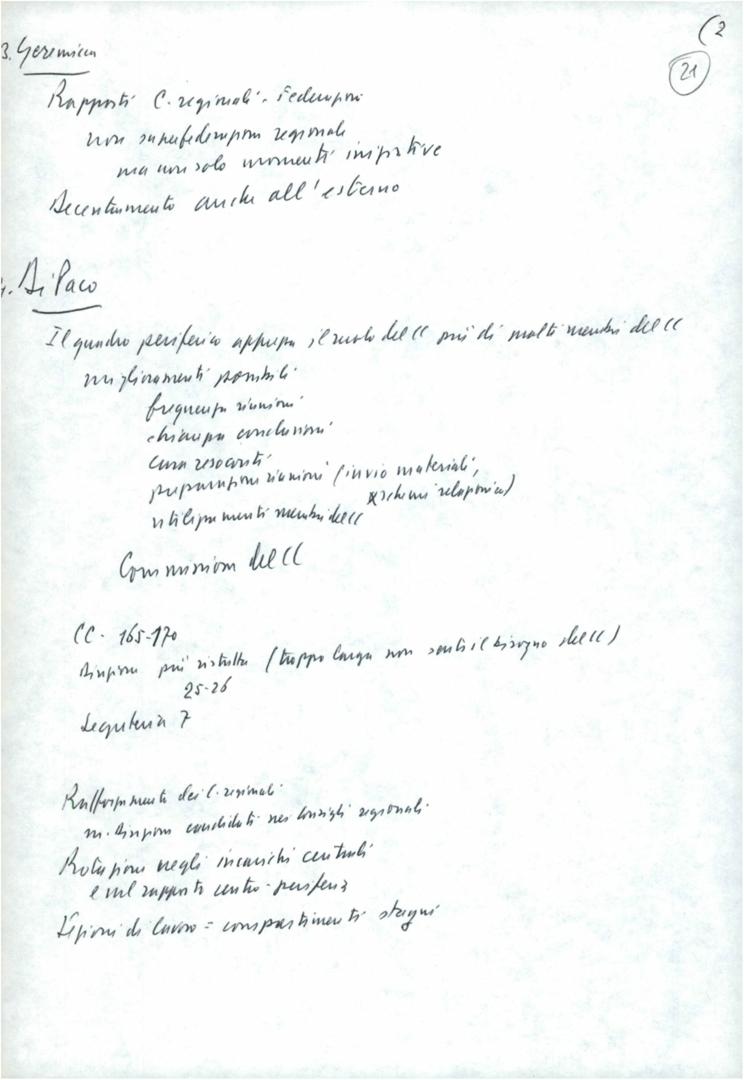 (2
21
3. Geremicca
Rapporti C. regionali - Federazioni
non superfederazioni regionali
ma non solo momenti iniziative
Decentramento anche all'esterno
4. Di Paco
Il quadro periferico apprezza il ruolo del CC più di molti membri del CC
miglioramenti possibili
frequenza riunioni
chiarezza conclusioni
cura resoconti
preparazioni riunioni (invio materiali,
schemi relazione)
utilizzamenti membri del CC
Commissioni del CC
CC - 165-170
Direzione più ristretta (troppo larga non senti il bisogno del CC)
25-26
Segreteria 7
Rafforzamenti dei C. regionali
m. Direzione candidati nei Consigli regionali
Rotazione negli incarichi centrali
e nel rapporto centro-periferia
Sezioni di lavoro = compartimenti stagni